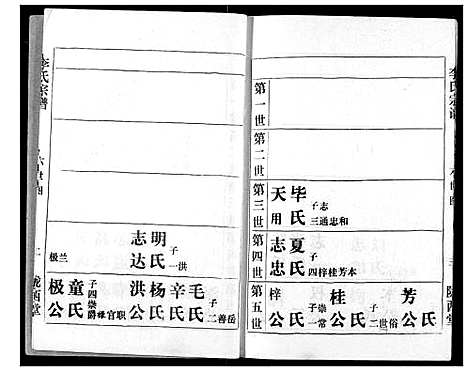 李氏宗谱
第一世
第二世
第三世
天用
毕氏
子志
三通忠和
第四世
志忠
夏氏
子
四梓桂芳本
第五世
芳公
氏
桂公
氏
子
二世俗
梓公
氏
子崇
一常
李氏宗谱
二
陇西堂
志达
明氏
子
一洪
极兰
毛氏
子
二善岳
辛氏
杨氏
洪公
童氏
子崇
四爵禄官职
极公